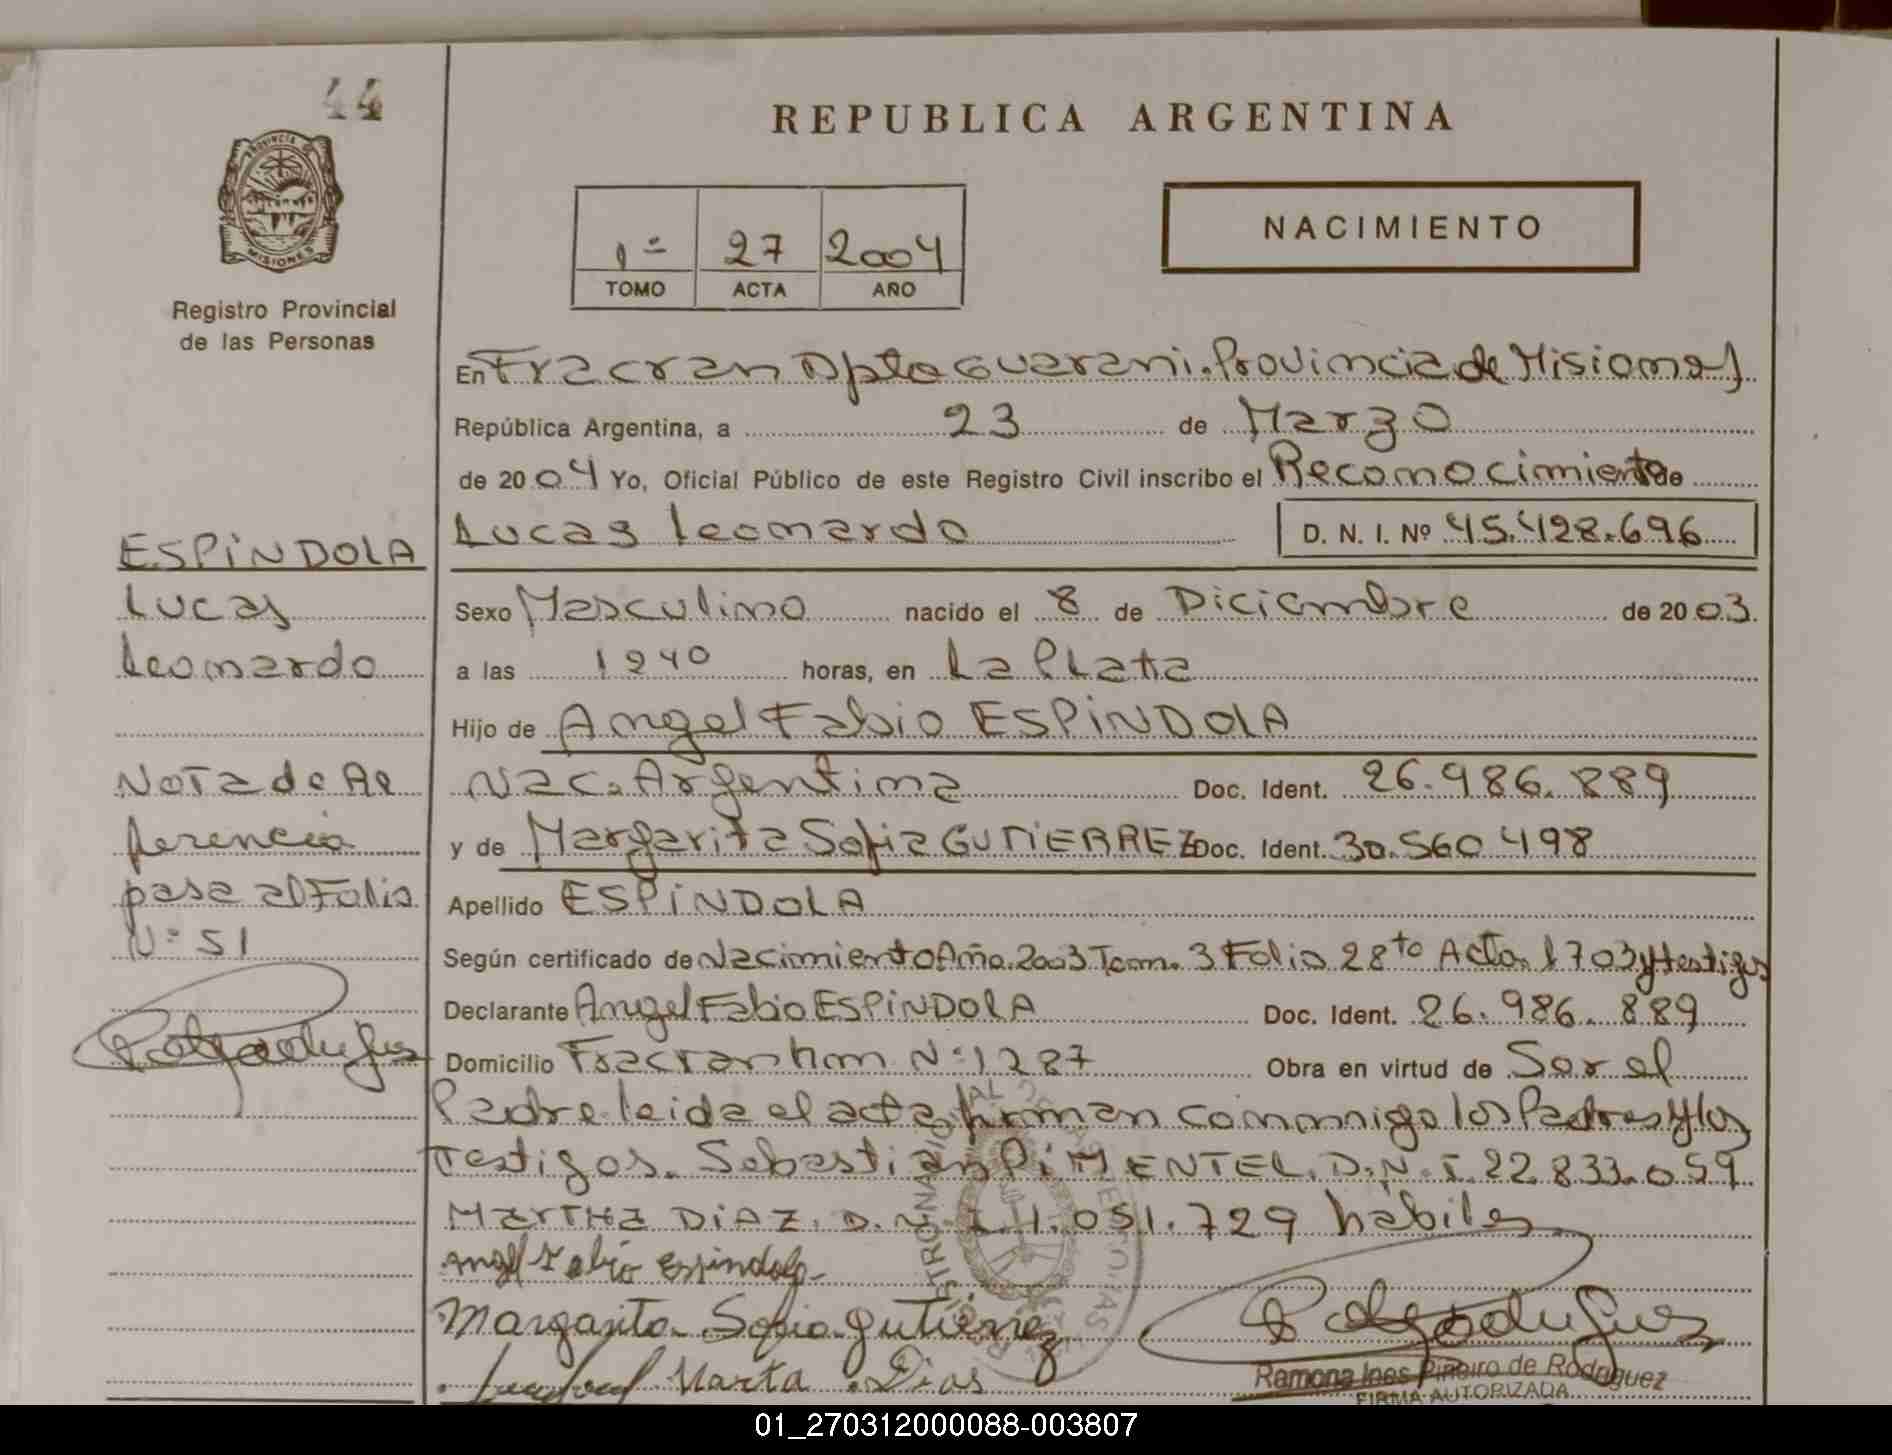 44
PROVINCIA DE
MISIONES
Registro Provincial
de las Personas
ESPINDOLA
Lucas
Leonardo
Nota de Re
ferencia
pasa al Folio
Nº 51
REPUBLICA ARGENTINA
1º 27 2004
TOMO ACTA AÑO
NACIMIENTO
En Fracran Dpto Guarani. Provincia de Misiones
República Argentina, a 23 de Marzo
de 2004 Yo, Oficial Público de este Registro Civil inscribo el Reconocimiento de
Lucas Leonardo D. N. I. Nº 45.428.696
Sexo Masculino nacido el 8 de Diciembre de 2003
a las 1240 horas, en La Plata
Hijo de Angel Fabio ESPINDOLA
Nac. Argentina Doc. Ident. 26.986.889
y de Margarita Sofia GUTIERREZ Doc. Ident. 30.560.498
Apellido ESPINDOLA
Según certificado de Nacimiento Año 2003 Tom. 3 Folio 28to Acta 1703 y testigos
Declarante Angel Fabio ESPINDOLA Doc. Ident. 26.986.889
Domicilio Fracran hm Nº 1287 Obra en virtud de Ser el
Padre leida el acta firman conmigo los Padres y los
Testigos. Sebastian PIMENTEL. D.N.I. 22.833.059
MARTHA DIAZ. D.N.I. 4.051.729 hábiles
Angel Fabio Espindola
Margarita Sofia Gutierrez
Marta Dias
Ramona Ines Piñeiro de Rodriguez
FIRMA AUTORIZADA
01_270312000088-003807